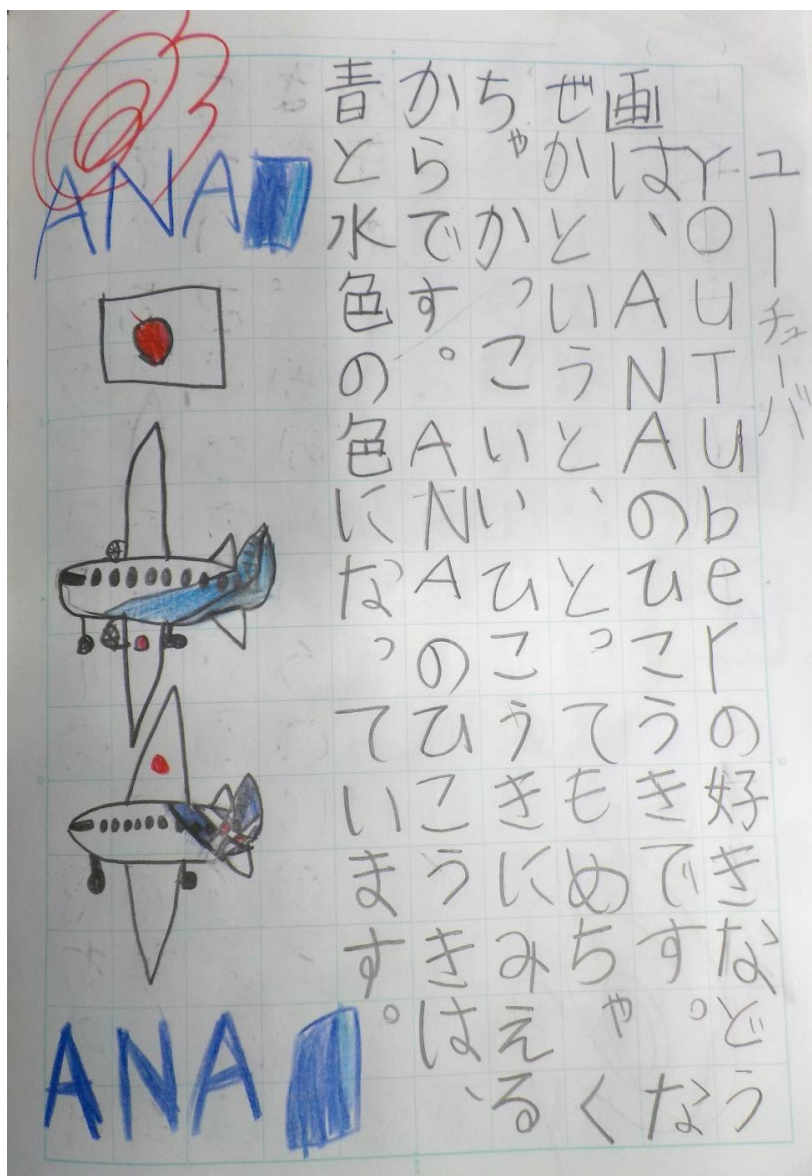 ユーチューバ
YOUTUberの好きなどう
画は、ANAのひこうきです。な
ぜかというと、とってもめちゃく
ちゃかっこいいひこうきにみえる
からです。ANAのひこうきは、
青と水色の色になっています。
ANA
ANA